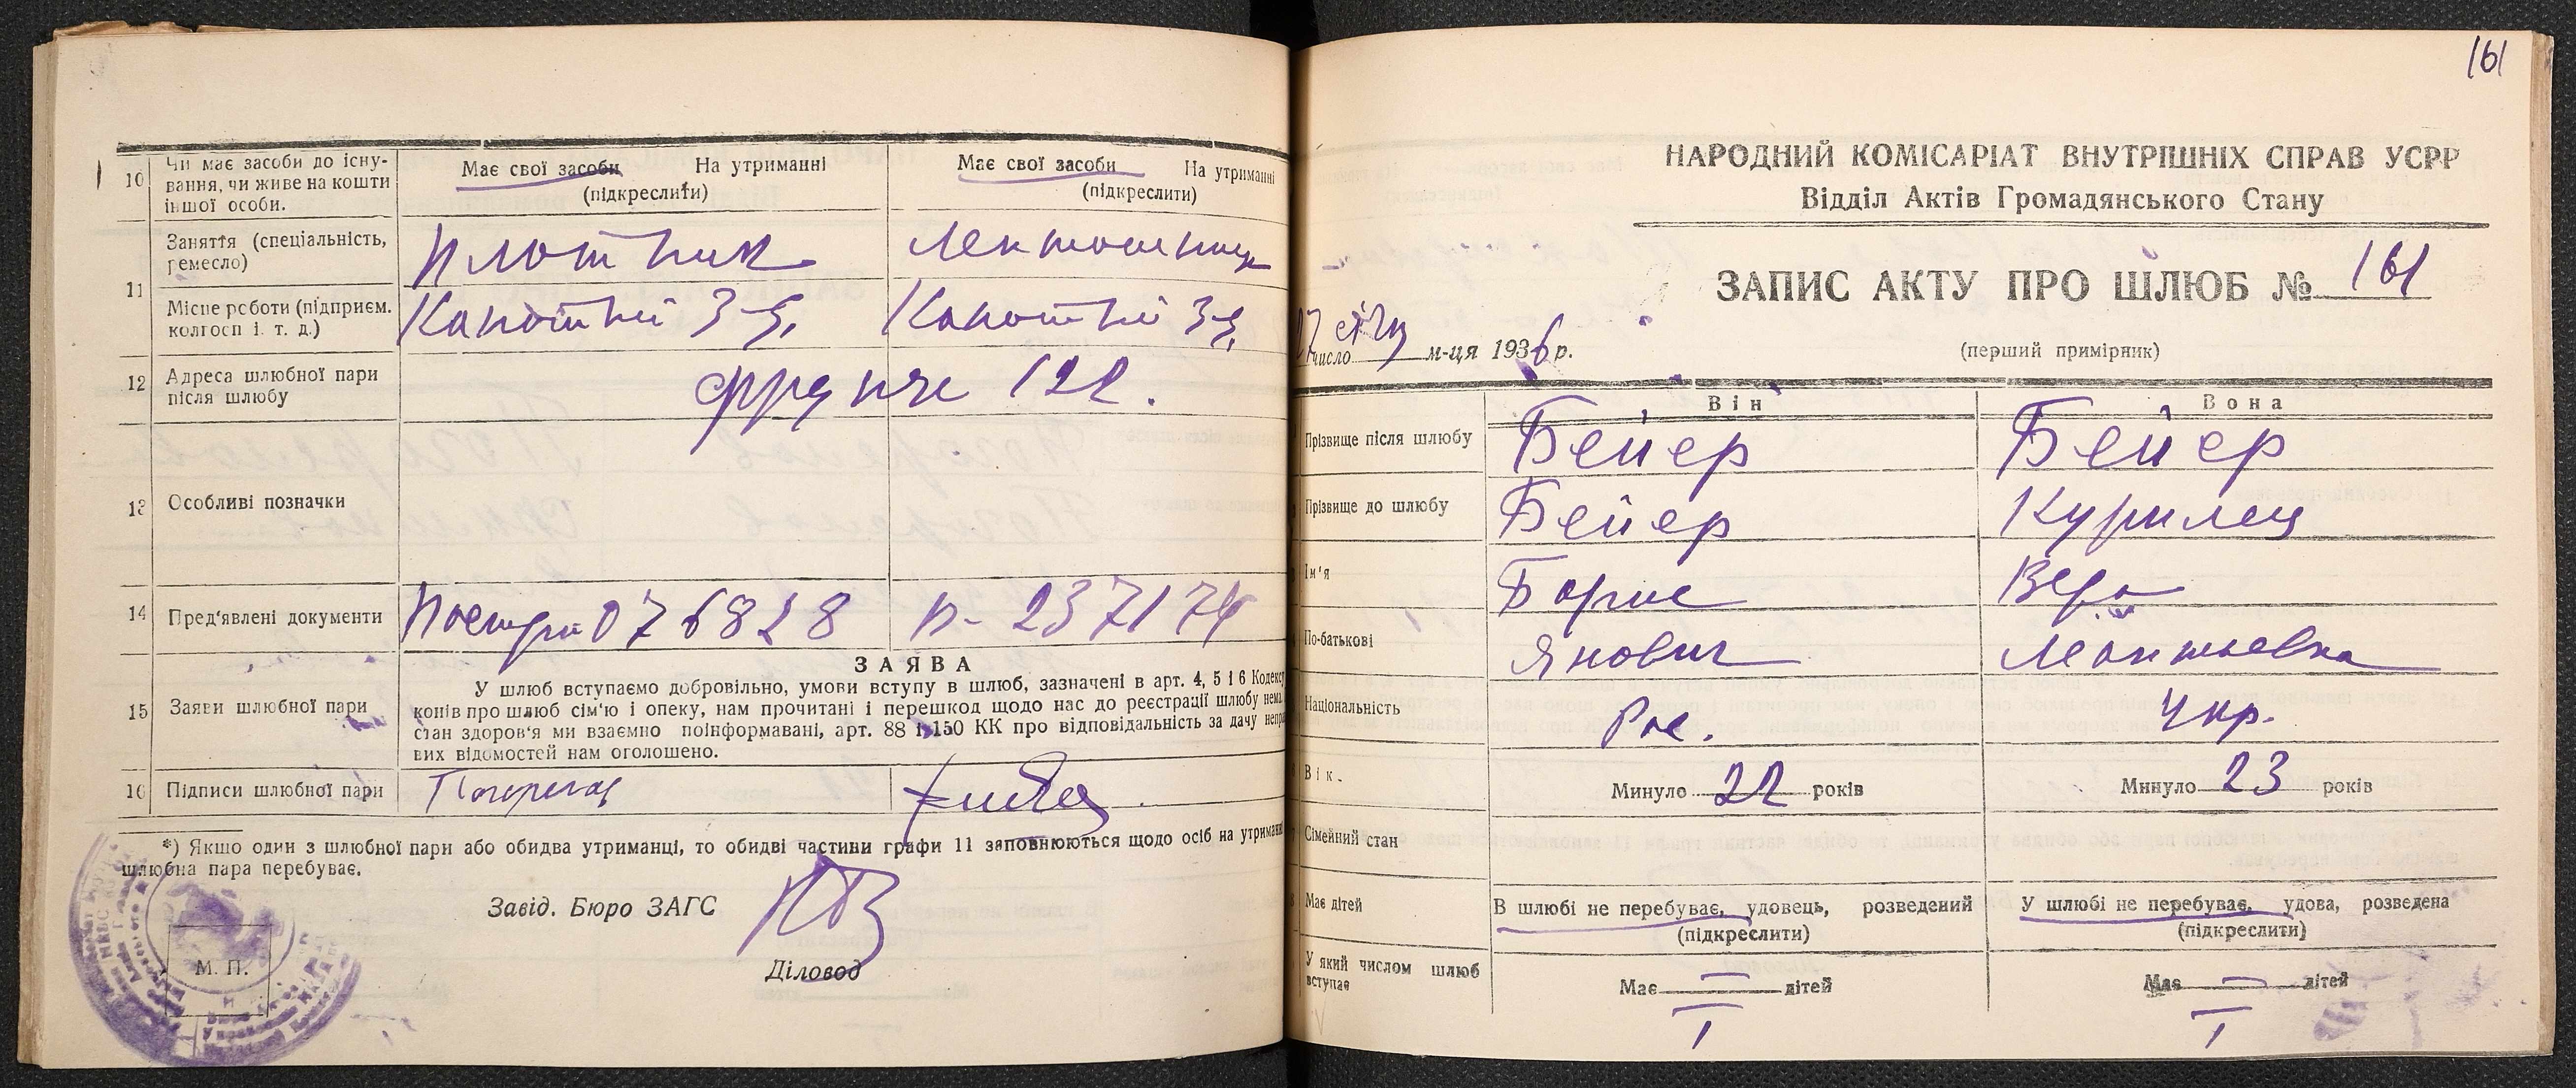 10 Чи має засоби до існу-
вання, чи живе на кошти
іншої особи.
Має свої засоби На утриманні
(підкреслити)
Має свої засоби На утриманні
(підкреслити)
11 Заняття (спеціальність,
ремесло)
плотник
Місце роботи (підприєм.
колгосп і. т. д.)
Канатний З-д,
Канатний З-д,
12 Адреса шлюбної пари
після шлюбу
Фрунзе 122.
13 Особливі позначки
14 Пред'явлені документи
076828
п- 237174
15 Заяви шлюбної пари
ЗАЯВА
У шлюб вступаємо добровільно, умови вступу в шлюб, зазначені в арт. 4, 5 і 6 Кодексу
конів про шлюб сім'ю і опеку, нам прочитані і перешкод щодо нас до реєстрації шлюбу нема,
стан здоров'я ми взаємно поінформавані, арт. 88 і 150 КК про відповідальність за дачу непра
вих відомостей нам оголошено.
16 Підписи шлюбної пари
*) Якщо один з шлюбної пари або обидва утриманці, то обидві частини графи 11 заповнюються щодо осіб на утриманні
шлюбна пара перебуває.
Завід. Бюро ЗАГС
М. П.
Діловод
161
НАРОДНИЙ КОМІСАРІАТ ВНУТРІШНІХ СПРАВ УСРР
Відділ Актів Громадянського Стану
ЗАПИС АКТУ ПРО ШЛЮБ № 161
27 січн
число м-ця 1936 р.
(перший примірник)
Він Вона
Прізвище після шлюбу Бейер Бейер
Прізвище до шлюбу Бейер Курилец
Ім'я Борис Вера
По-батькові Янович
Національність Рос. Укр.
Вік. Минуло 22 років Минуло 23 років
Сімейний стан
Має дітей
В шлюбі не перебуває, удовець, розведений
(підкреслити)
У шлюбі не перебуває, удова, розведена
(підкреслити)
У який числом шлюб
вступає
Має — дітей Має — дітей
I I